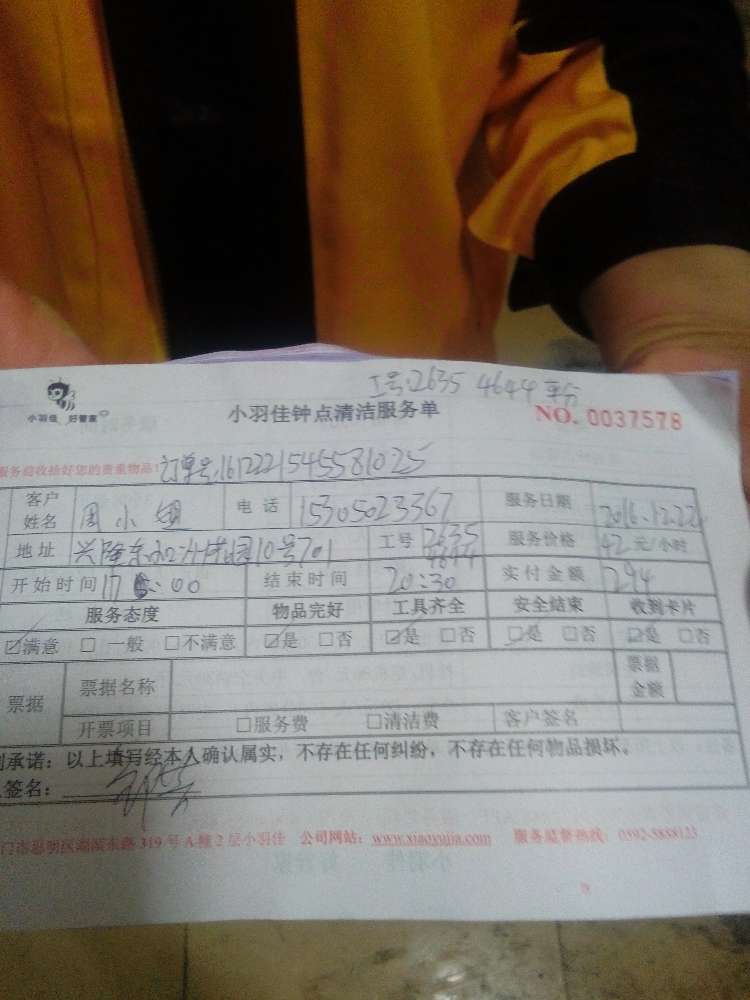 工号:2635 4644 平分
小羽佳 好管家
小羽佳钟点清洁服务单
NO. 0037578
服务前收拾好您的贵重物品!
订单号:1612221545581025
客户姓名 周小姐 电话 15305023367 服务日期 2016.12.22
地址 10号701 工号 2635 4644 服务价格 42元/小时
开始时间 17:00 结束时间 20:30 实付金额 294
服务态度 物品完好 工具齐全 安全结束 收到卡片
☑满意 □一般 □不满意 ☑是 □否 ☑是 □否 ☑是 □否 ☑是 □否
票据 票据名称 票据金额
开票项目 □服务费 □清洁费 客户签名
承诺：以上填写经本人确认属实，不存在任何纠纷，不存在任何物品损坏。
签名：
门市思明区湖滨东路319号A幢2层小羽佳 公司网站：www.xiaoyujia.com 服务监督热线：0592-5858123